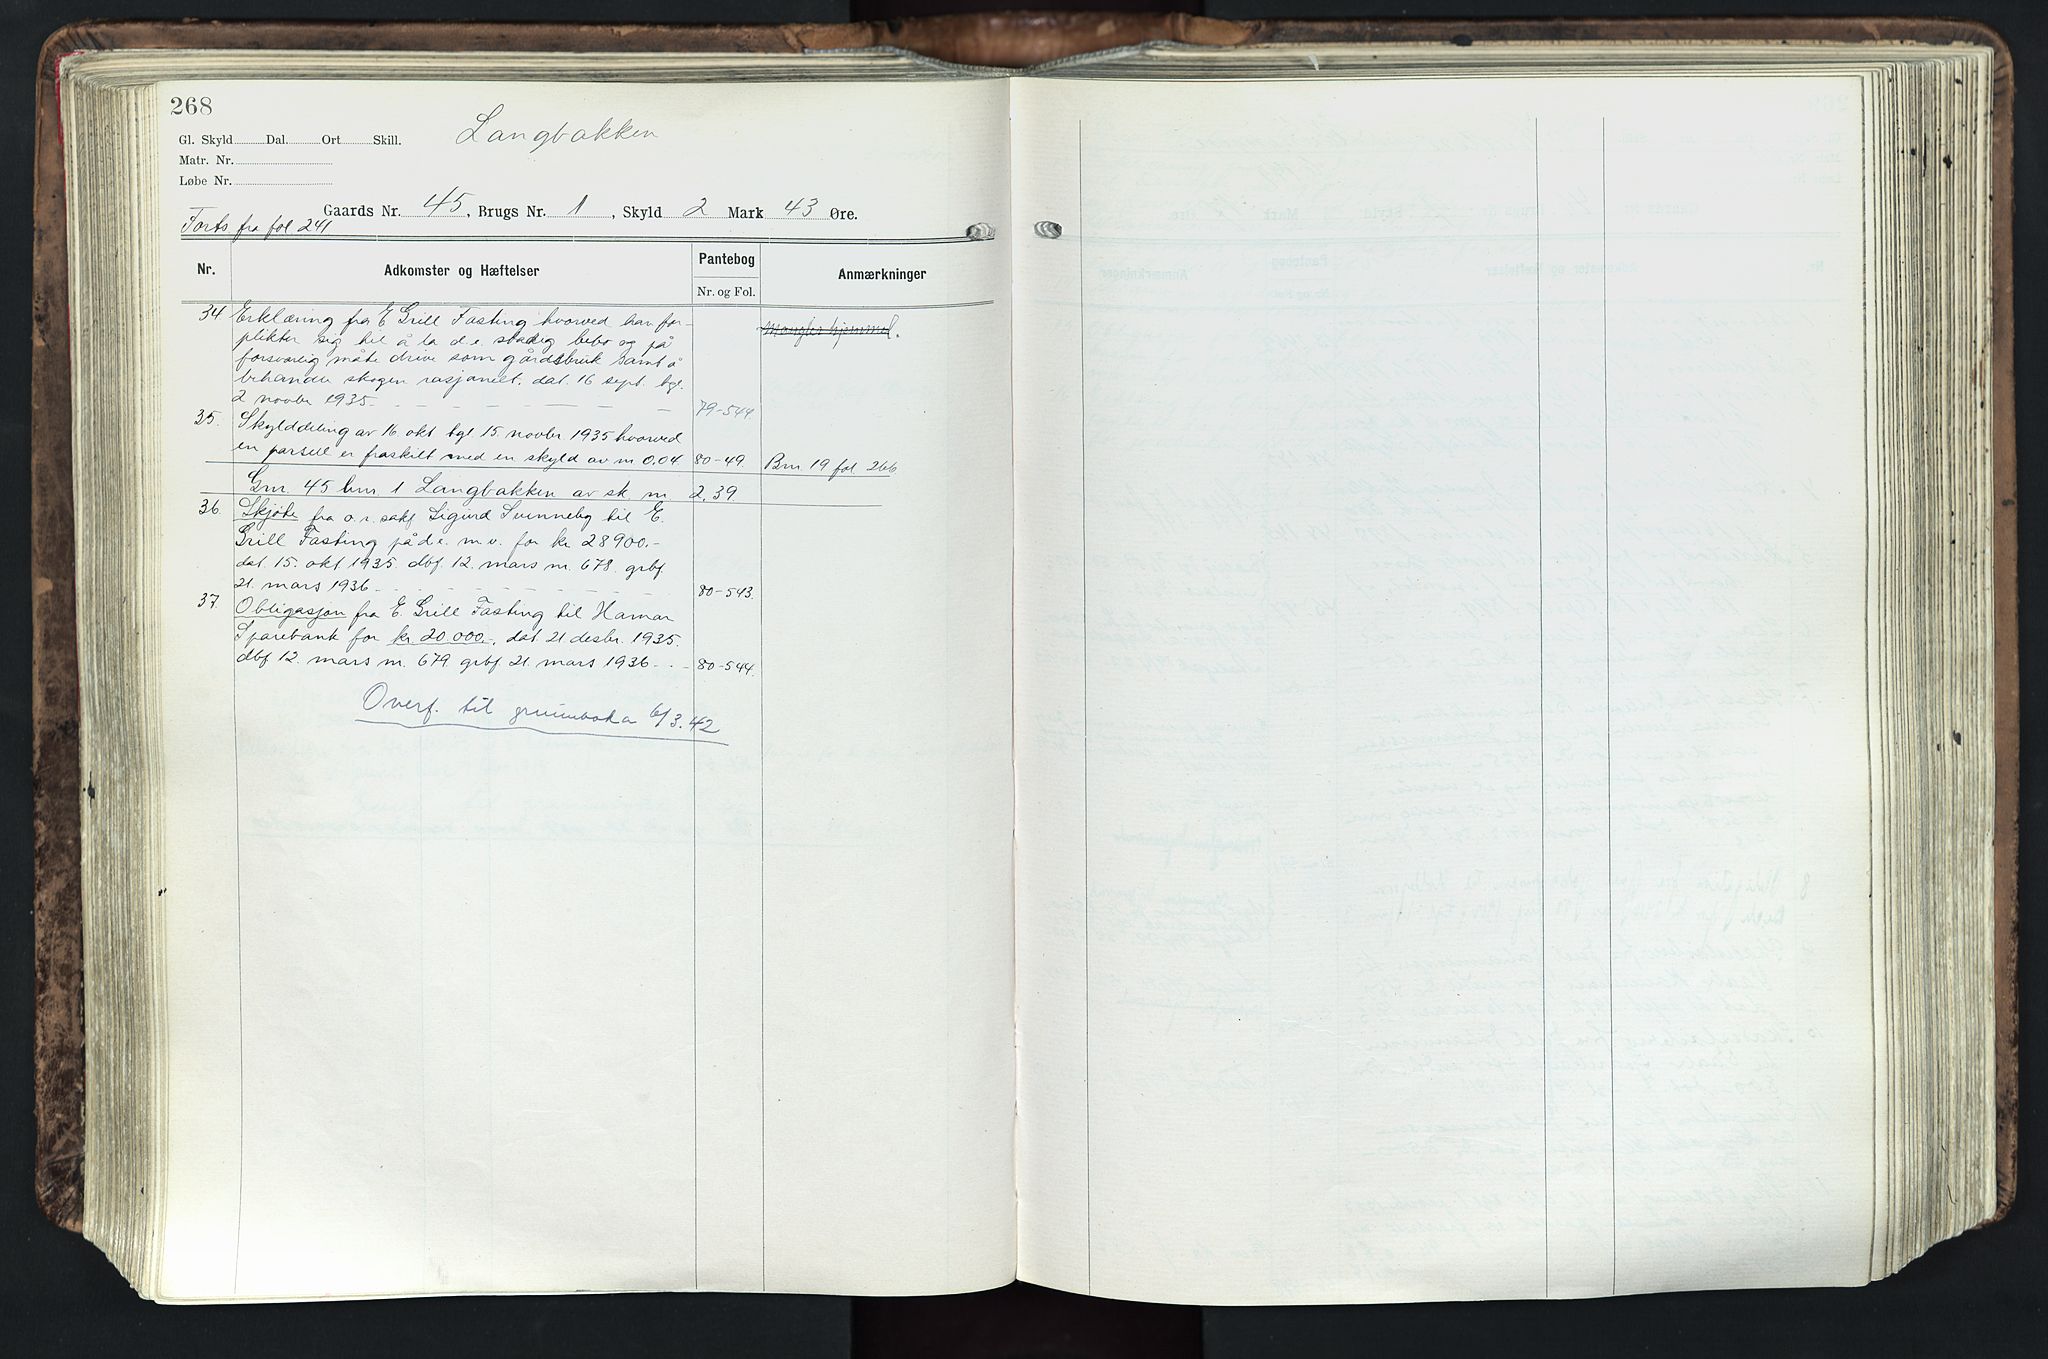 268
Langbakken
Gl. Skyld Dal. Ort Skill.
Matr. Nr.
Løbe Nr.
Gaards Nr. 45, Brugs Nr. 1, Skyld 2 Mark 43 Øre.
Forts fra fol 241
Nr. Adkomster og Hæftelser Pantebog Nr. og Fol. Anmærkninger
34 Erklæring fra E Grill Fasting hvorved han for- Mangler hjemmel.
plikter sig til å la d.e. stadig bebo og på
forsvarlig måte drive som gårdsbruk samt å
behandle skogen rasjonelt. dat. 16 sept. tgl.
2 novbr 1935 79-544
35. Skylddeling av 16. okt tgl. 15. novbr. 1935 hvorved
en parsell er fraskilt med en skyld av m 0.04. 80-49. Bnr. 19 fol 266
Gnr. 45 bnr. 1 Langbakken av sk. m 2.39
36. Skjøte fra o.r. sakf Sigurd Svenneby til E.
Grill Fasting på d.e. m.v. for kr 28900.-
dat. 15. okt 1935. dbf 12. mars nr. 678. grbf
21. mars 1936 80-543.
37. Obligasjon fra E. Grill Fasting til Hamar
Sparebank for kr. 20.000.-, dat 21 desbr. 1935.
dbf 12. mars nr. 679. grbf 21. mars 1936 80-544.
Overf. til grunnboka 6/3.42